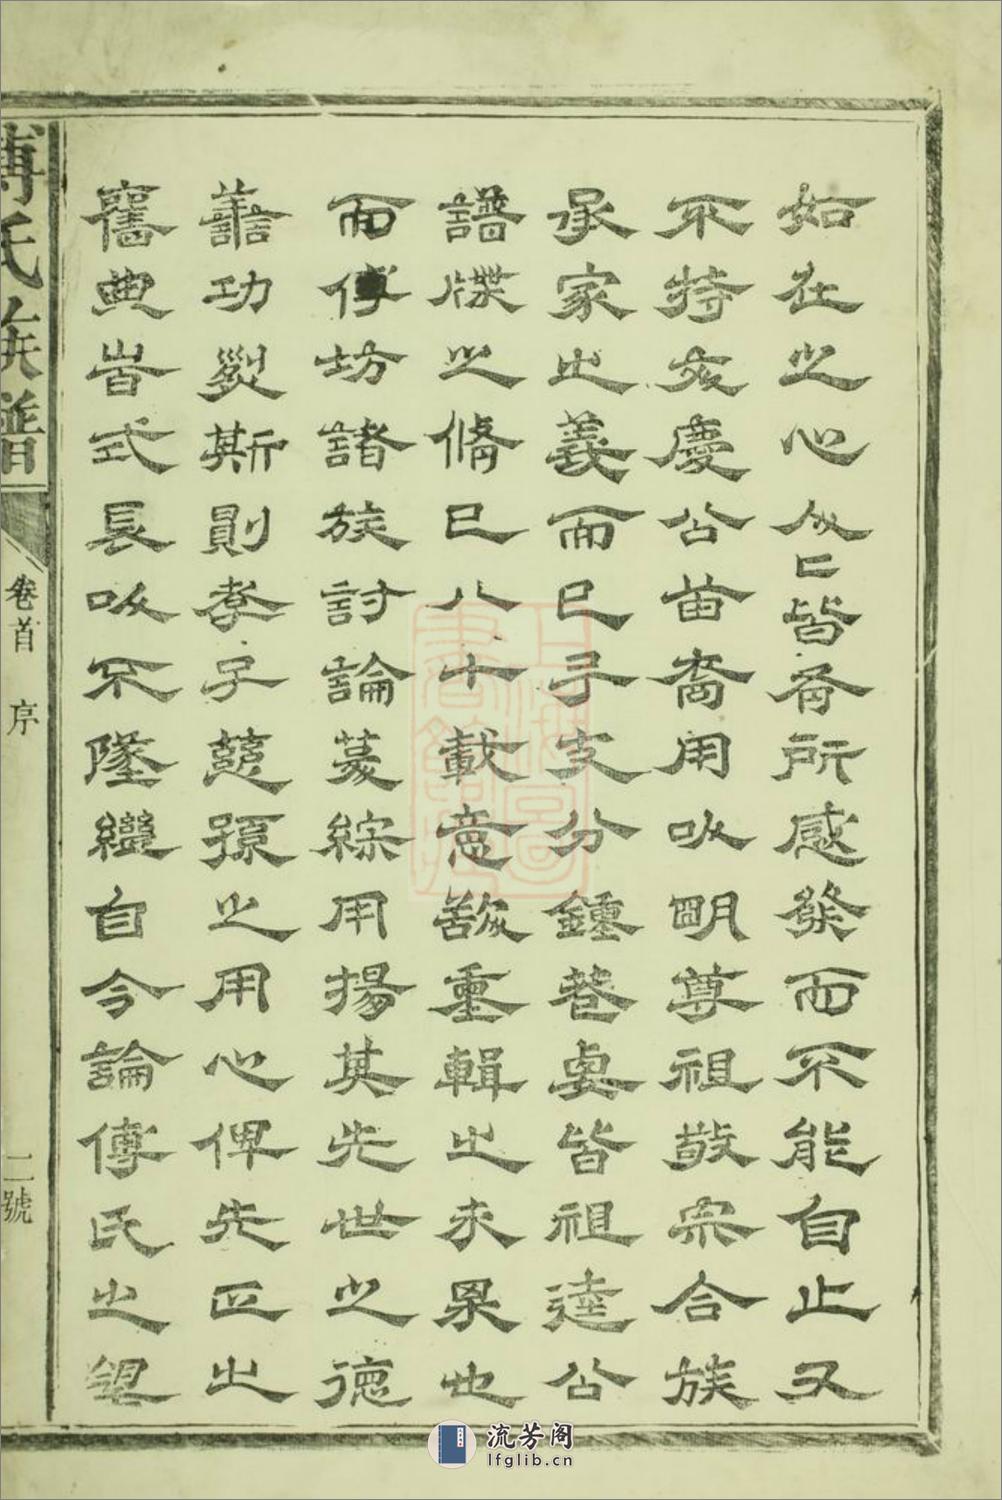 如在之心人人皆有所感發而不能自止又
不特友慶公苗裔用以明尊祖敬宗合族
承家之義而已予支分鍾巷與皆祖達公
譜牒之脩已八十載意欲重輯之未果也
而傅坊諸族討論纂綜用揚其先世之德
善功烈斯則孝子慈孫之用心俾先正之
舊典皆式長以不墜繼自今論傅氏之
傅氏族譜
卷首 序
二號
流芳阁
lfglib.cn